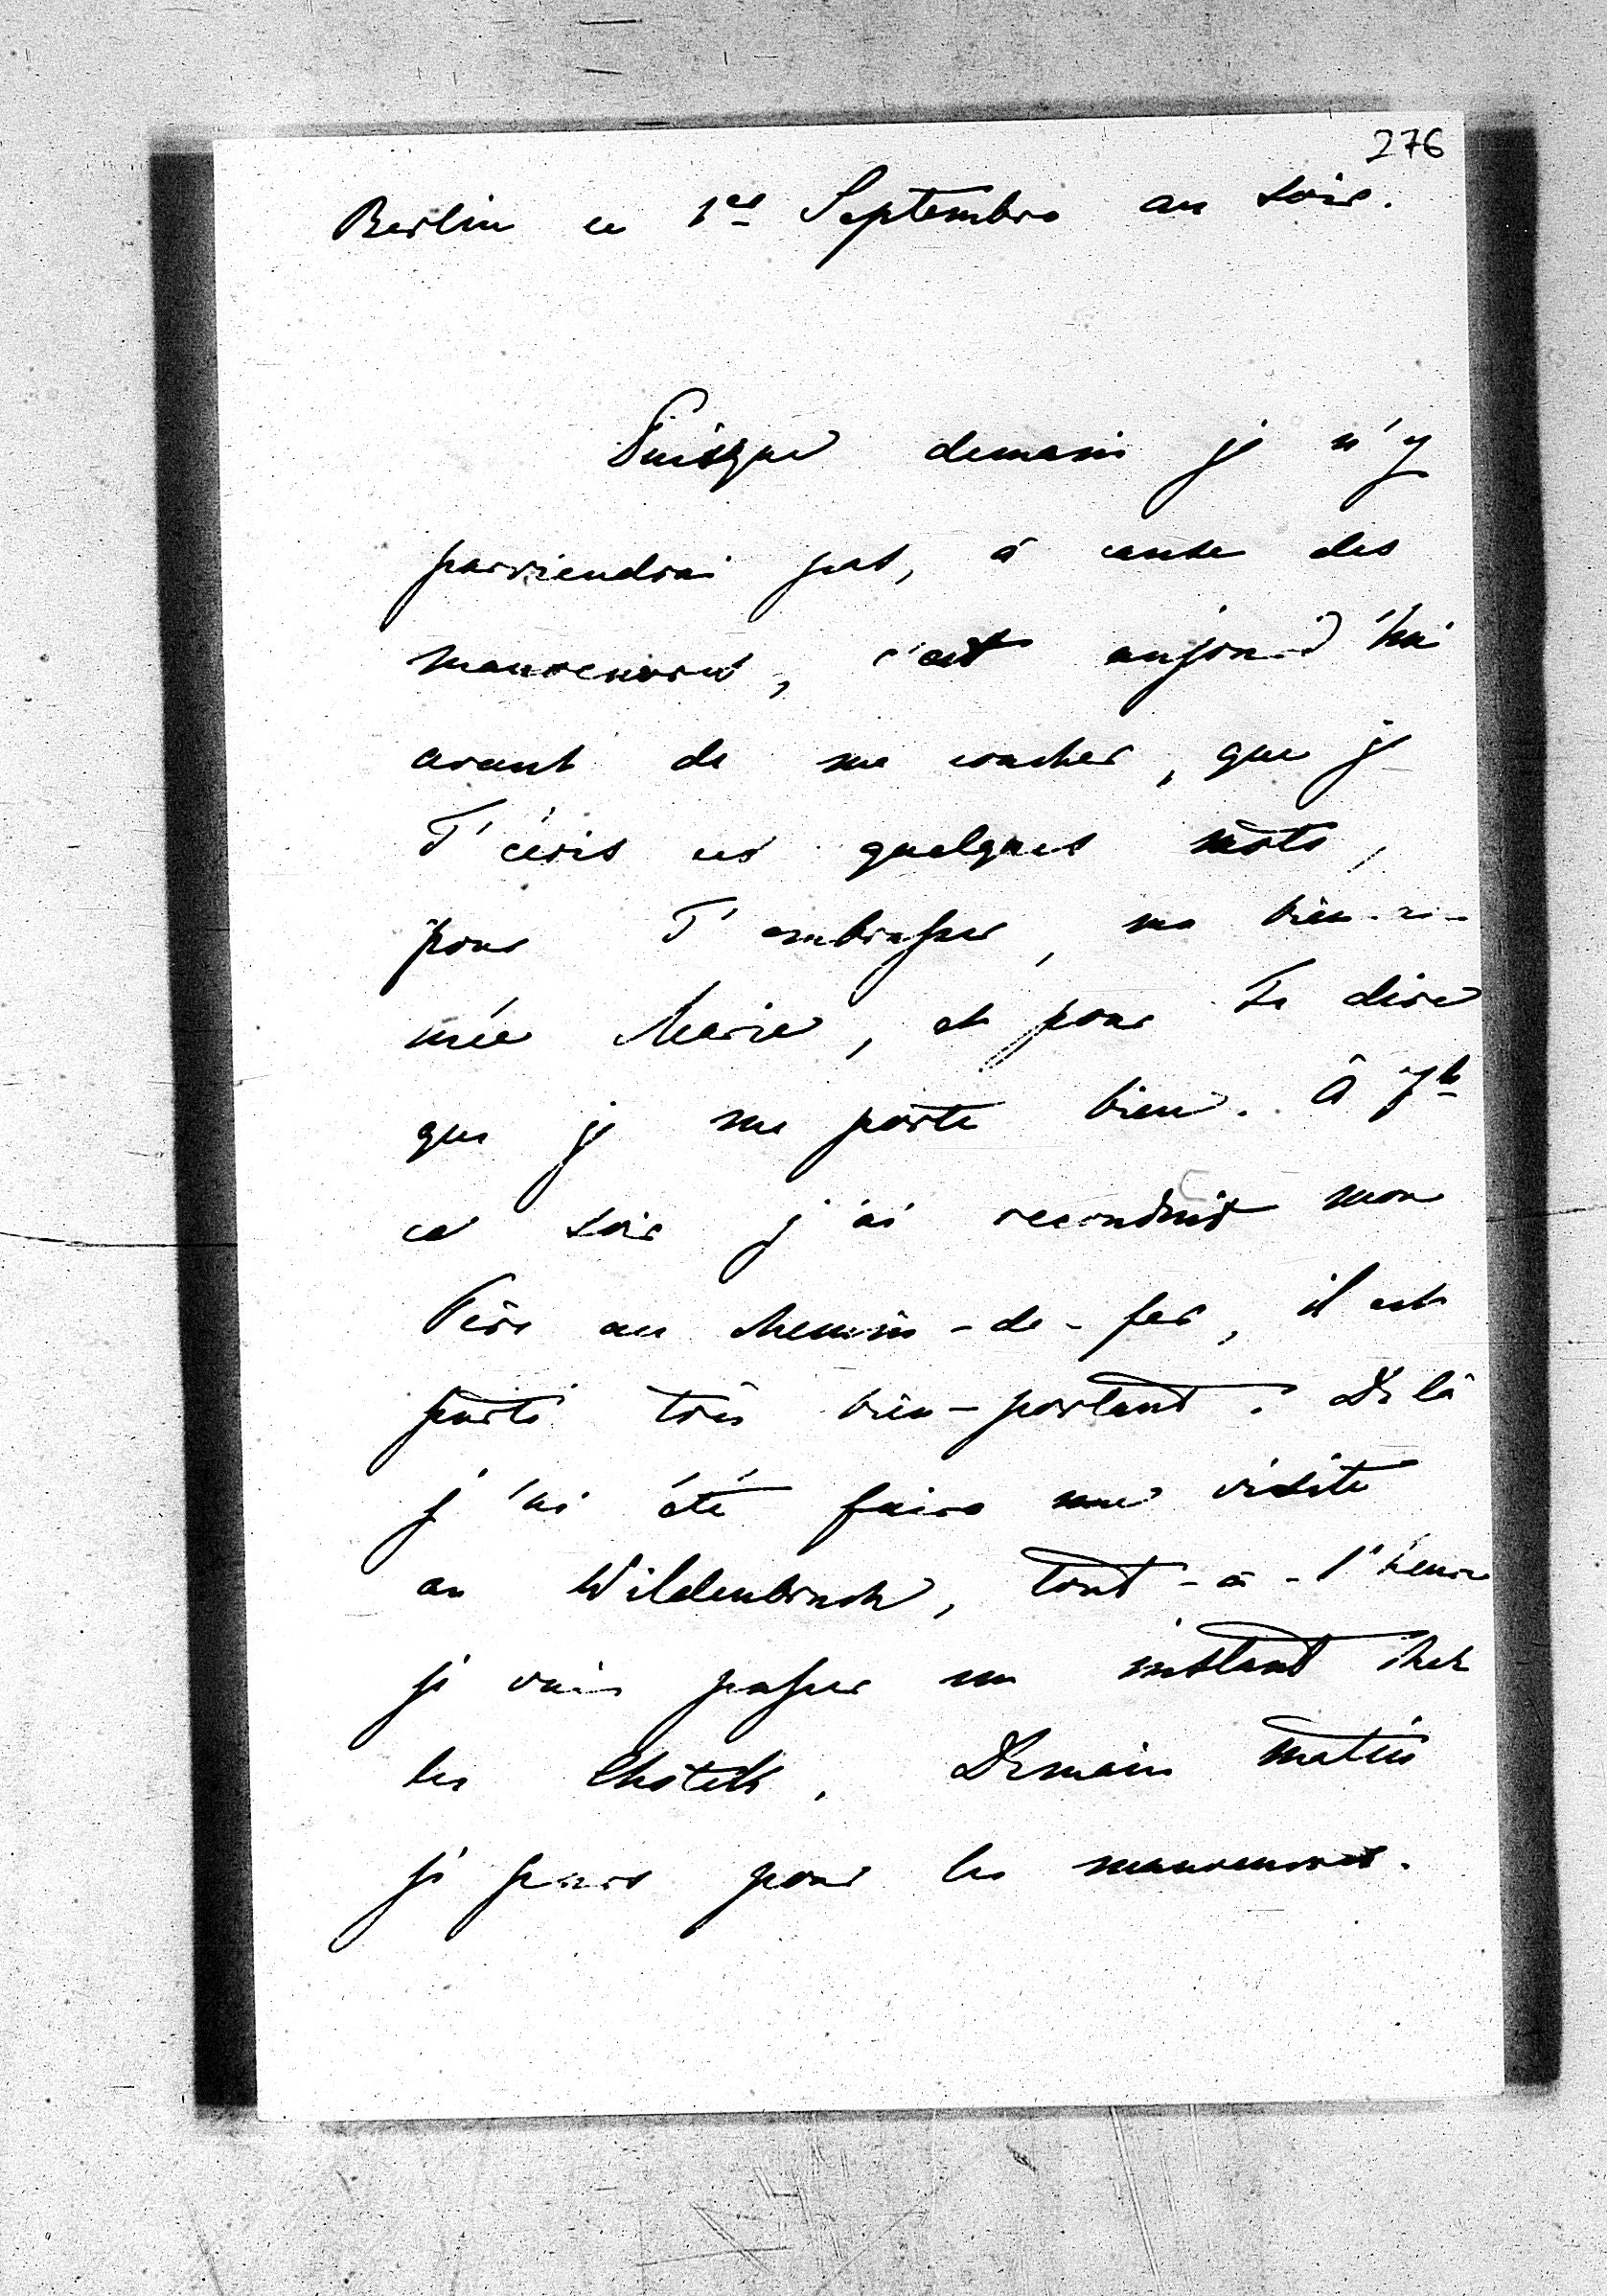 276
Berlin ce 1er Septembre au soir.
Puisque demain je n'y
parviendrai pas, à cause des
manoeuvres, c'est aujourd'hui
avant de me coucher, que je
T'écris ces quelques mots,
pour T'embrasser, ma bien-ai-
mée Marie, et pour Te dire
que je me porte bien. À 7h
ce soir j'ai reconduit mon
Père au chemin-de-fer, il est
parti très bien-portant. De là
j'ai été faire une visite
au Wildenbruch, tout-à-l'heure
je vais passer un instant chez
les Chotek. Demain matin
je pars pour les manoeuvres.